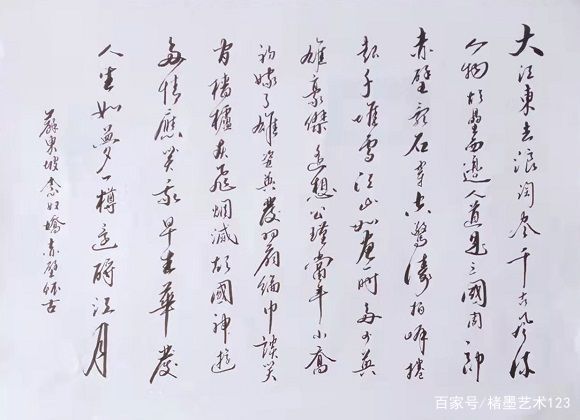 大江東去浪淘盡千古風流
人物故壘西邊人道是三國周郎
赤壁亂石穿空驚濤拍岸捲
起千堆雪江山如畫一時多少英
雄豪傑遙想公瑾當年小喬
初嫁了雄姿英發羽扇綸巾談笑
間檣櫓灰飛烟滅故國神遊
多情應笑我早生華發
人生如夢一樽還酹江月
蘇東坡念奴嬌赤壁懷古
百家号/楮墨艺术123